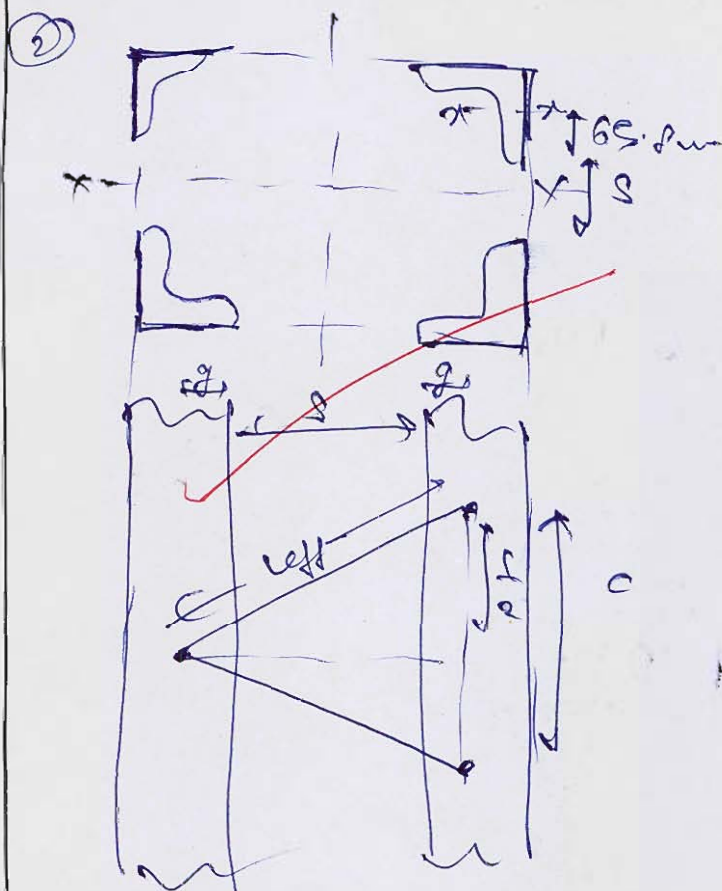 2
x x
65.8
x x S
g g
S
Leff
C